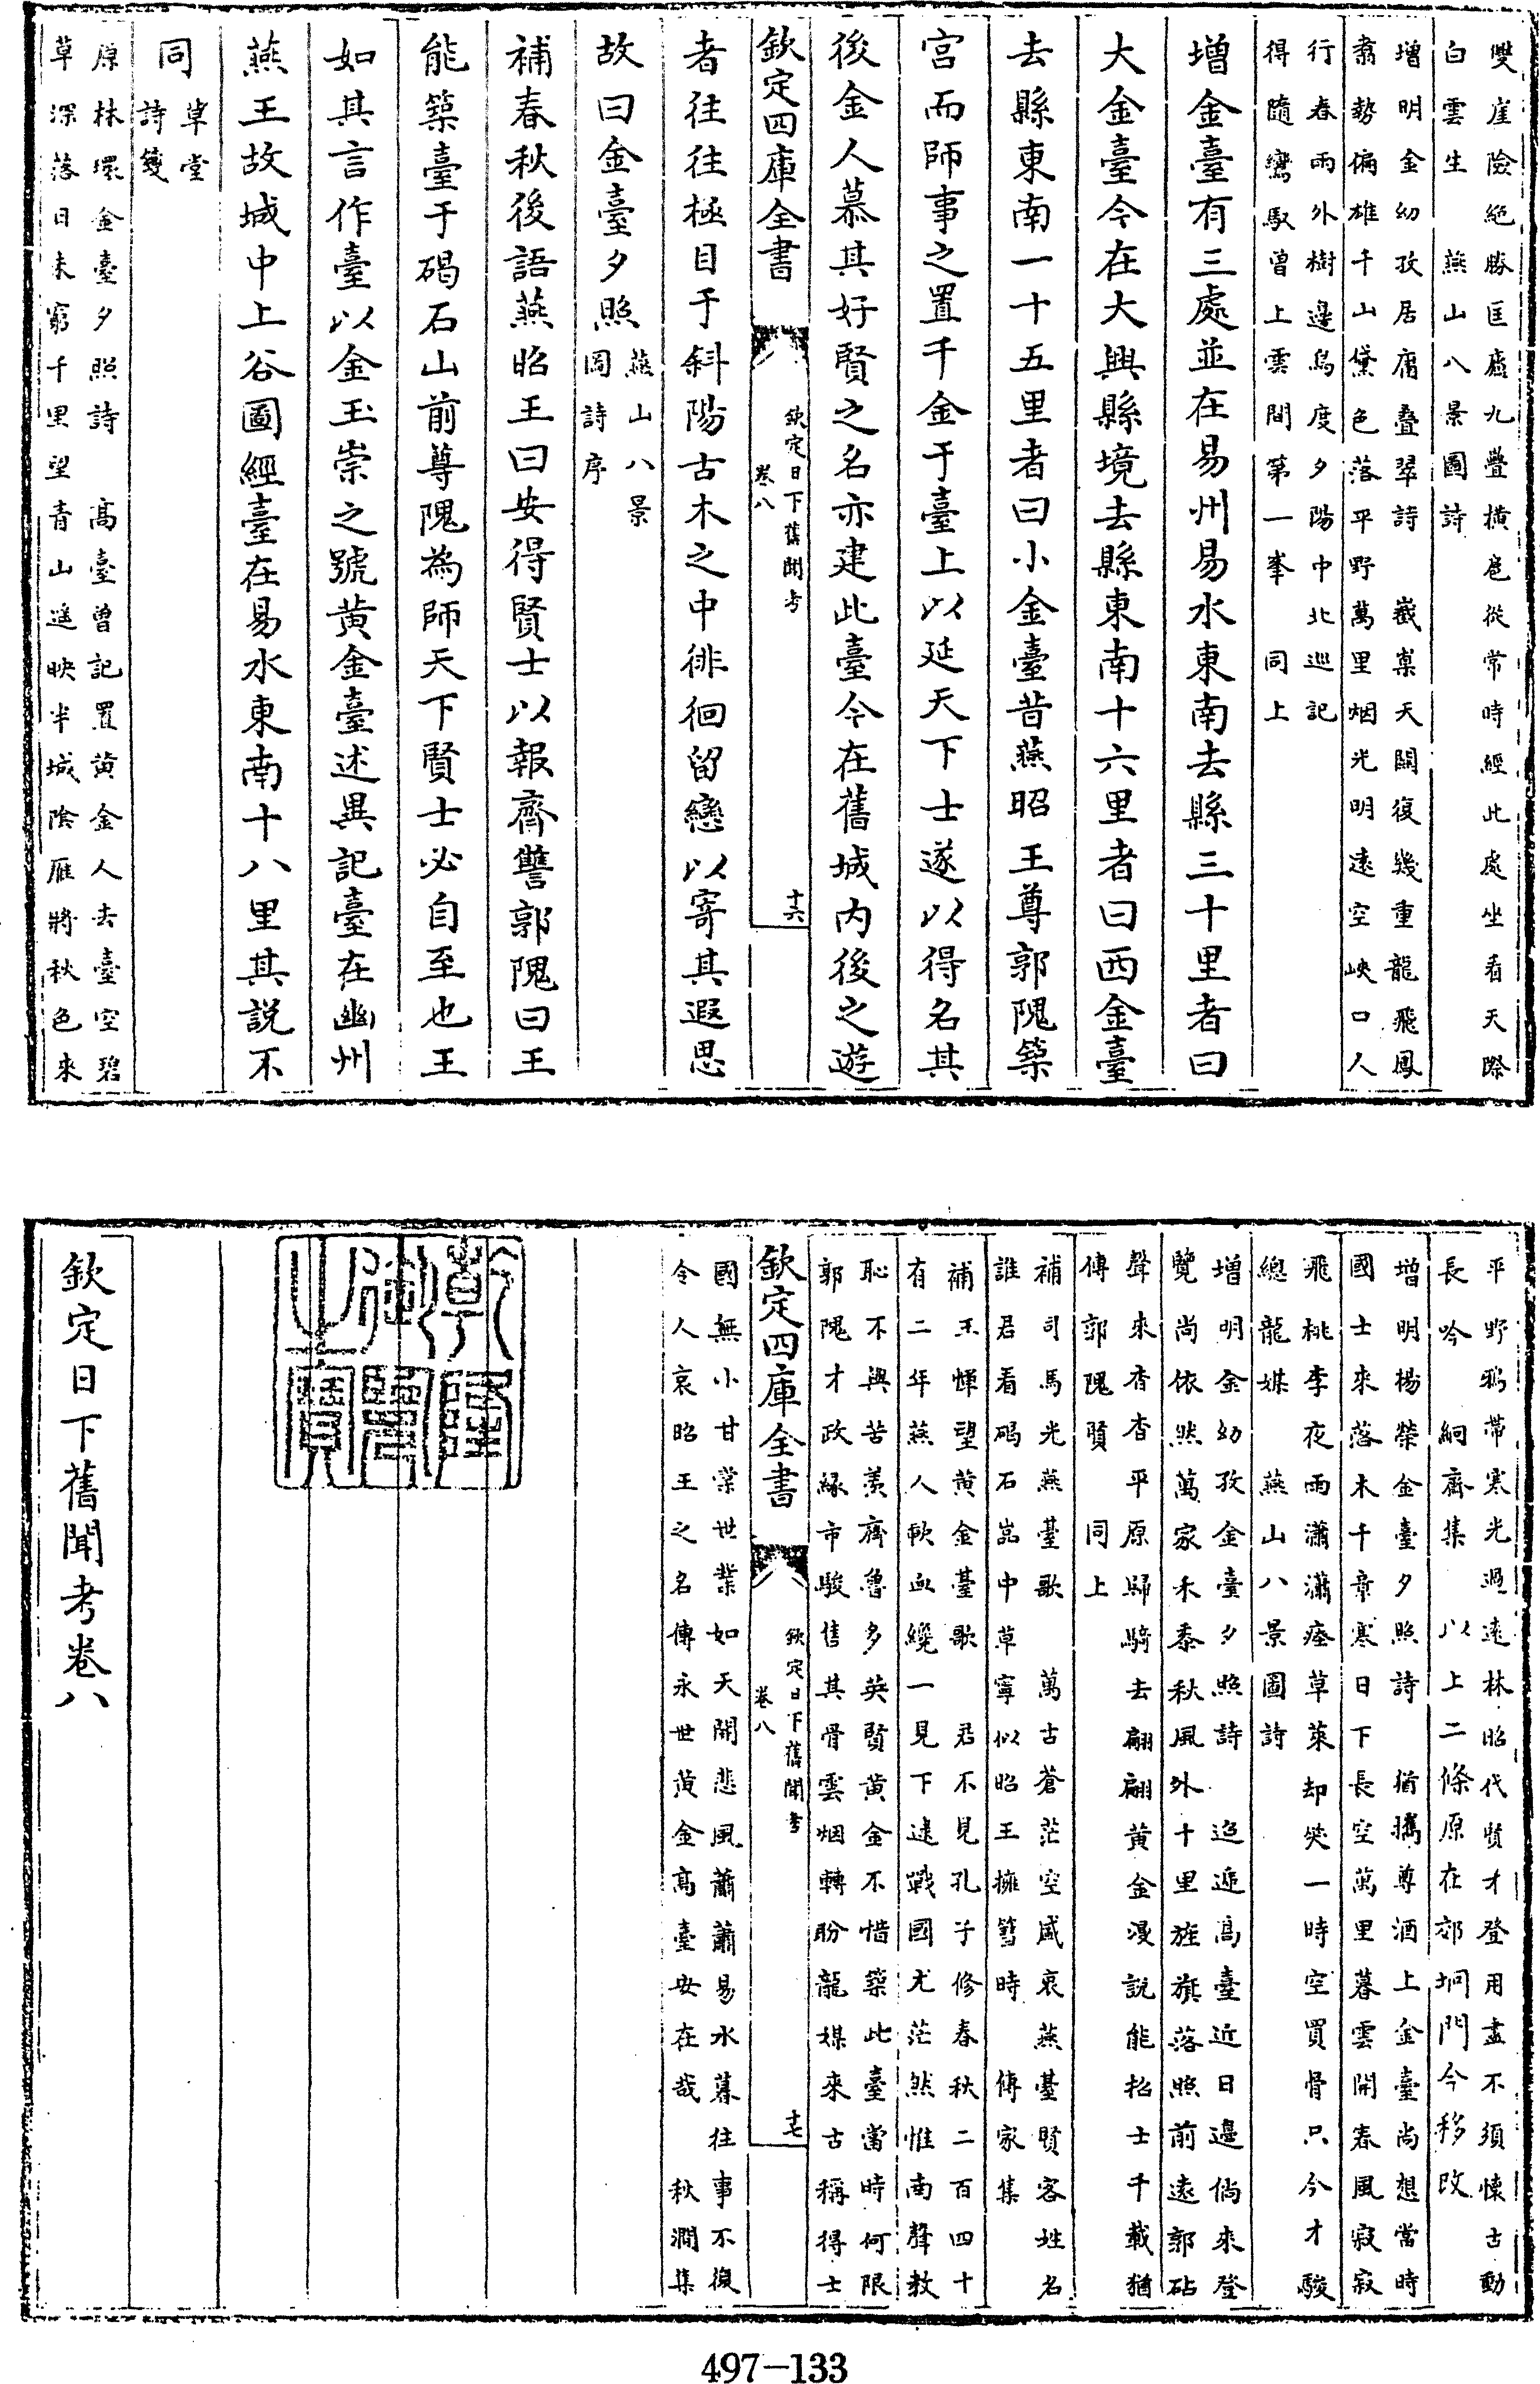 雙崖險絶勝匡廬九疊横巵從常時經此處坐看天際
白雲生　燕山八景圖詩
増明金幼孜居庸疊翠詩　巀嶪天關復幾重龍飛鳳
翥勢偏雄千山黛色落平野萬里烟光明遠空峽口人
行春雨外樹邉鳥度夕陽中北巡記
得隨鸞馭曾上雲間第一峯　同上
增金臺有三處並在易州易水東南去縣三十里者曰
大金臺今在大興縣境去縣東南十六里者曰西金臺
去縣東南一十五里者曰小金臺昔燕昭王尊郭隗築
宫而師事之置千金于臺上以延天下士遂以得名其
後金人慕其好賢之名亦建此臺今在舊城内後之遊
欽定四庫全書
欽定日下舊聞考
卷八
十六
者往往極目于斜陽古木之中徘徊留戀以寄其遐思
故曰金臺夕照燕山八景
圖詩序
補春秋後語燕昭王曰安得賢士以報齊讐郭隗曰王
能築臺于碣石山前尊隗為師天下賢士必自至也王
如其言作臺以金玉崇之號黄金臺述異記臺在幽州
燕王故城中上谷圖經臺在易水東南十八里其説不
同草堂
詩箋
原林環金臺夕照詩　髙臺曾記置黄金人去臺空碧
草深落日未窮千里望青山遥映半城陰雁將秋色來
平野鴉帶寒光過遠林昭代賢才登用盡不須懐古動
長吟　絅齋集　以上二條原在郊坰門今移改
増明楊榮金臺夕照詩　猶擕尊酒上金臺尚想當時
國士來落木千章寒日下長空萬里暮雲開春風寂寂
飛桃李夜雨瀟瀟瘞草萊却笑一時空買骨只今才駿
總龍媒　燕山八景圖詩
增明金幼孜金臺夕照詩　迢遞髙臺近日邊倘來登
覽尚依然萬家禾黍秋風外十里旌旗落照前遠郭砧
聲來杳杳平原歸騎去翩翩黄金漫説能招士千載猶
傳郭隗賢　同上
補司馬光燕臺歌　萬古蒼茫空感哀燕臺賢客姓名
誰君看碣石嵓中草寧似昭王擁篲時　傳家集
補王惲望黄金臺歌　君不見孔子修春秋二百四十
有二年燕人歃血纔一見下逮戰國尤茫然惟南聲教
恥不與苦羨齊魯多英賢黄金不惜築此臺當時何限
郭隗才政縁市駿售其骨雲烟轉盼龍媒來古稱得士
欽定四庫全書
欽定日下舊聞考
卷八
十七
國無小甘棠世業如天開悲風蕭蕭易水暮往事不復
令人哀昭王之名傳永世黄金髙臺安在哉　秋澗集
乾隆御覽之寳
欽定日下舊聞考卷八
497-133